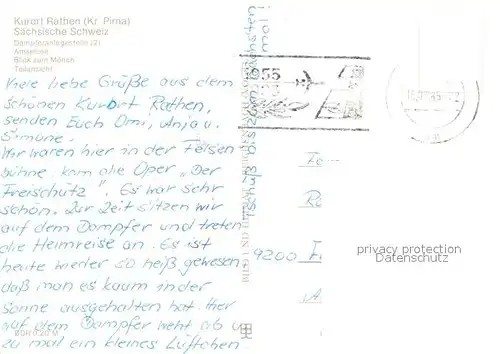 Kurort Rathen (Kr. Pirna)
Sächsische Schweiz
Dampferanlegestelle (2)
Amselsee
Blick zum Mönch
Teilansicht
Viele liebe Grüße aus dem
schönen Kurort Rathen,
senden Euch Omi, Anja u.
Simone.
Wir waren hier in der Felsen
bühne, kam die Oper „Der
Freischütz". Es war sehr
schön. Zur Zeit sitzen wir
auf dem Dampfer und treten
die Heimreise an. Es ist
heute wieder so heiß gewesen,
daß man es kaum in der
Sonne ausgehalten hat. Hier
auf dem Dampfer weht ab u.
zu mal ein kleines Lüftchen
Tschüß bis zum nächsten
mal!
1955
9200
privacy protection
Datenschutz